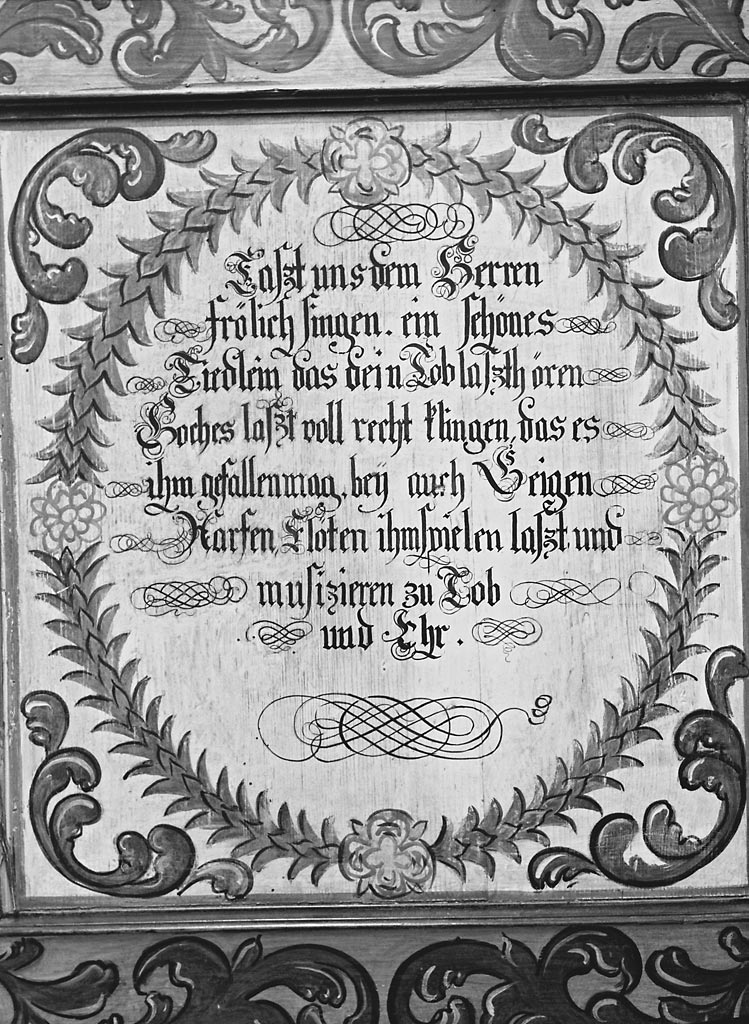 Laszt uns dem Herren
frölich singen. ein schönes
Liedlein das dein Lob laszt hören
Hoches laszt voll recht klingen, das es
ihm gefallen mag, bey auch Geigen
Harfen, Floten ihm spielen laszt und
musizieren zu Lob
und Ehr.